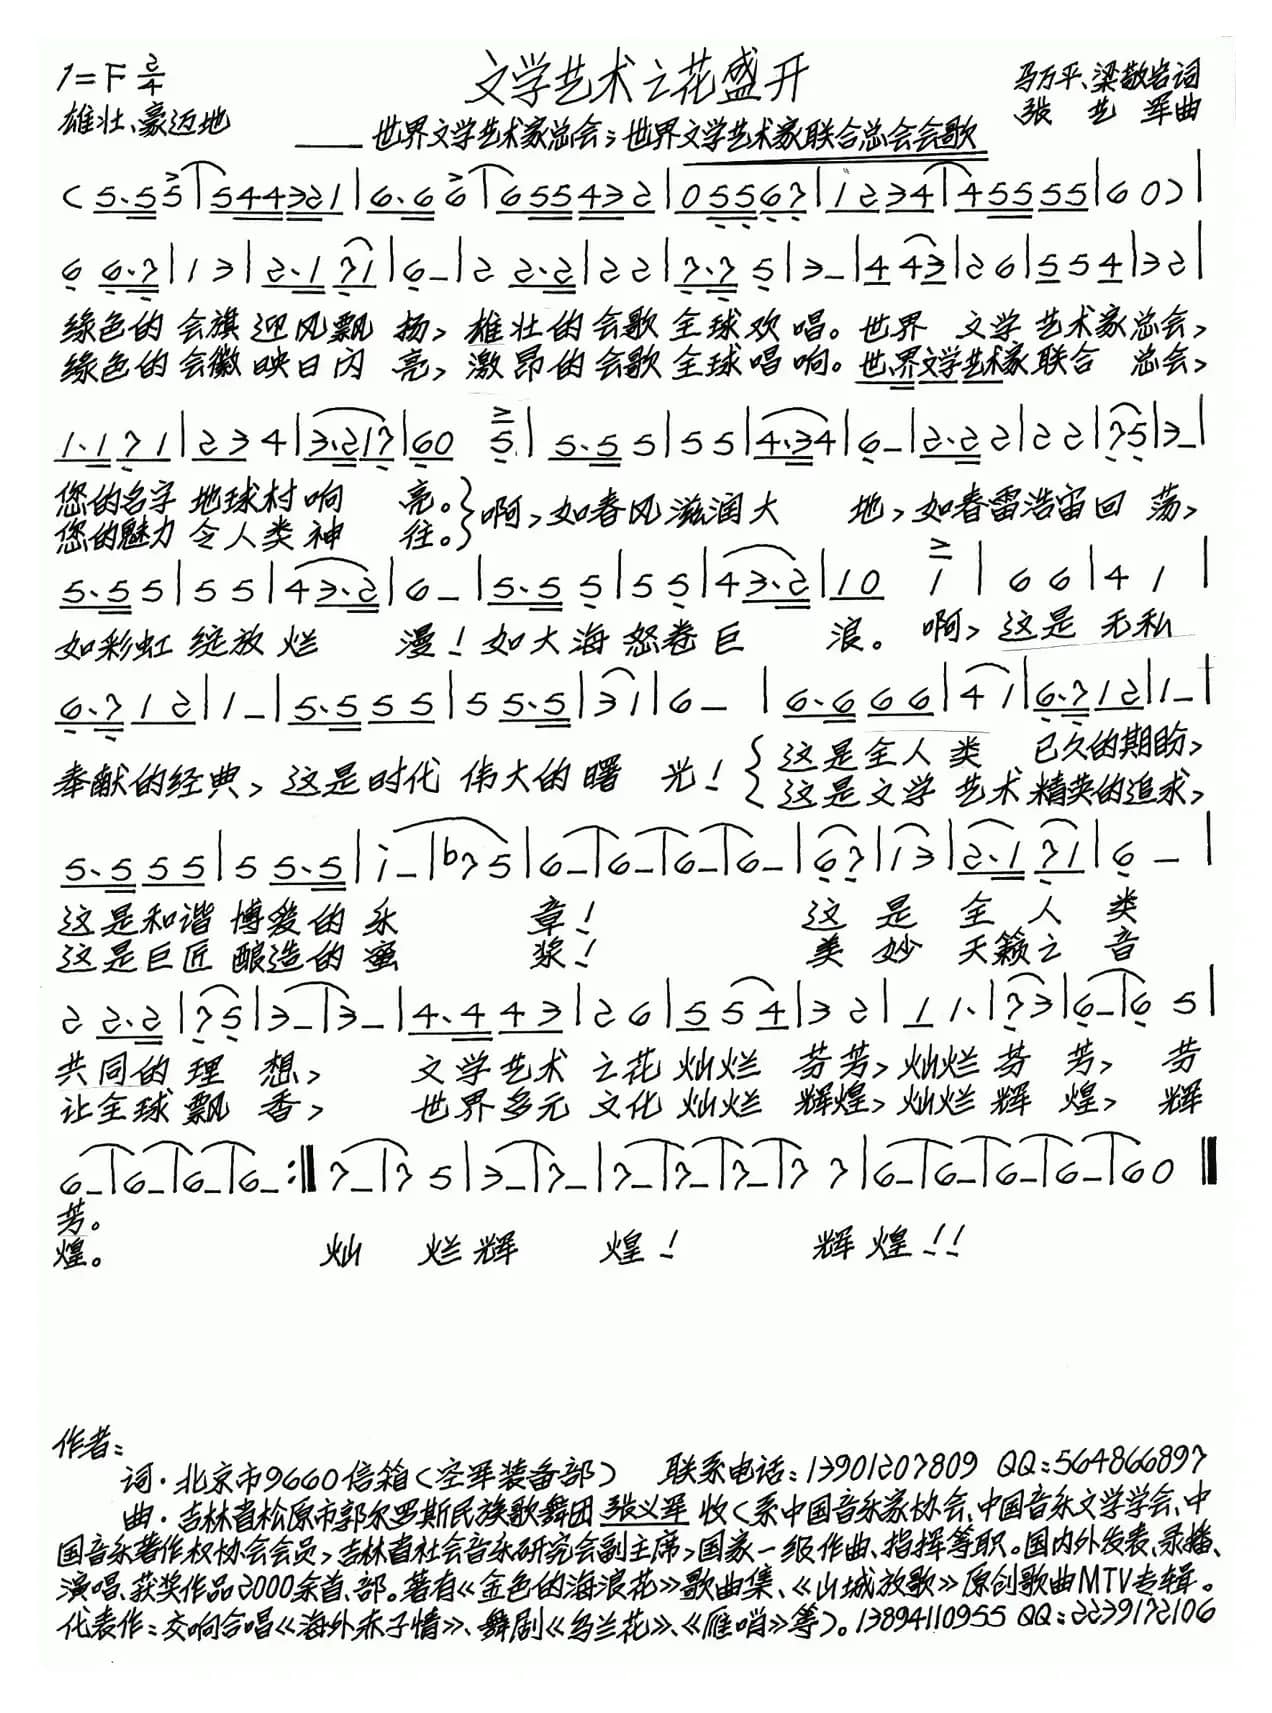 1=F 2/4
文学艺术之花盛开
马万平、梁敬岩词
雄壮、豪迈地
张艺军曲
——世界文学艺术家总会；世界文学艺术家联合总会会歌
( 5.5 5 | 5 4 4 3 2 1 | 6.6 6 | 6 5 5 4 3 2 | 0 5 5 6 7 | 1 2 3 4 | 4 5 5 5 5 | 6 0 ) |
6 6.7 | 1 3 | 2.1 7 1 | 6 – | 2 2.2 | 2 2 | 7.7 5 | 3 – | 4 4 3 | 2 6 | 5 5 4 | 3 2 |
绿色的会旗迎风飘扬，雄壮的会歌全球欢唱。世界 文学艺术家总会，
绿色的会徽映日闪亮，激昂的会歌全球唱响。世界文学艺术家联合 总会，
1.1 7 1 | 2 3 4 | 3.2 1 7 | 6 0 5 | 5.5 5 | 5 5 | 4.3 4 | 6 – | 2.2 2 | 2 2 | 7 5 | 3 – |
您的名字地球村响亮。} 啊，如春风滋润大地，如春雷浩宙回荡，
您的魅力令人类神往。
5.5 5 | 5 5 | 4 3.2 | 6 – | 5.5 5 | 5 5 | 4 3.2 | 1 0 1 | 6 6 | 4 1 |
如彩虹绽放烂漫！如大海怒卷巨浪。啊，这是无私
6.7 1 2 | 1 – | 5.5 5 5 | 5 5.5 | 3 1 | 6 – | 6.6 6 6 | 4 1 | 6.7 1 2 | 1 – |
奉献的经典，这是时代伟大的曙光！{ 这是全人类 已久的期盼，
这是文学艺术精英的追求，
5.5 5 5 | 5 5.5 | i – | b7 5 | 6 – | 6 – | 6 – | 6 – | 6 7 | 1 3 | 2.1 7 1 | 6 – |
这是和谐博爱的乐章！ 这是全人类
这是巨匠酿造的蜜浆！ 美妙天籁之音
2 2.2 | 7 5 | 3 – | 3 – | 4.4 4 3 | 2 6 | 5 5 4 | 3 2 | 1 1. | 7 3 | 6 – | 6 5 |
共同的理想， 文学艺术之花灿烂芬芳，灿烂芬芳，芬
让全球飘香， 世界多元文化灿烂辉煌，灿烂辉煌，辉
6 – | 6 – | 6 – | 6 – :‖ 7 – | 7 5 | 3 – | 7 – | 7 – | 7 – | 7 – | 7 7 | 6 – | 6 – | 6 – | 6 – | 6 0 ‖
芳。
煌。 灿烂辉煌！ 辉煌！！
作者：
词·北京市9660信箱（空军装备部） 联系电话：13901207809 QQ：564866897
曲·吉林省松原市郭尔罗斯民族歌舞团张义军收（系中国音乐家协会、中国音乐文学学会、中
国音乐著作权协会会员，吉林省社会音乐研究会副主席，国家一级作曲、指挥等职。国内外发表、录播、
演唱、获奖作品2000余首、部。著有《金色的海浪花》歌曲集、《山城放歌》原创歌曲MTV专辑。
代表作：交响合唱《海外赤子情》、舞剧《乌兰花》、《雁哨》等）。13894110955 QQ：2239172106